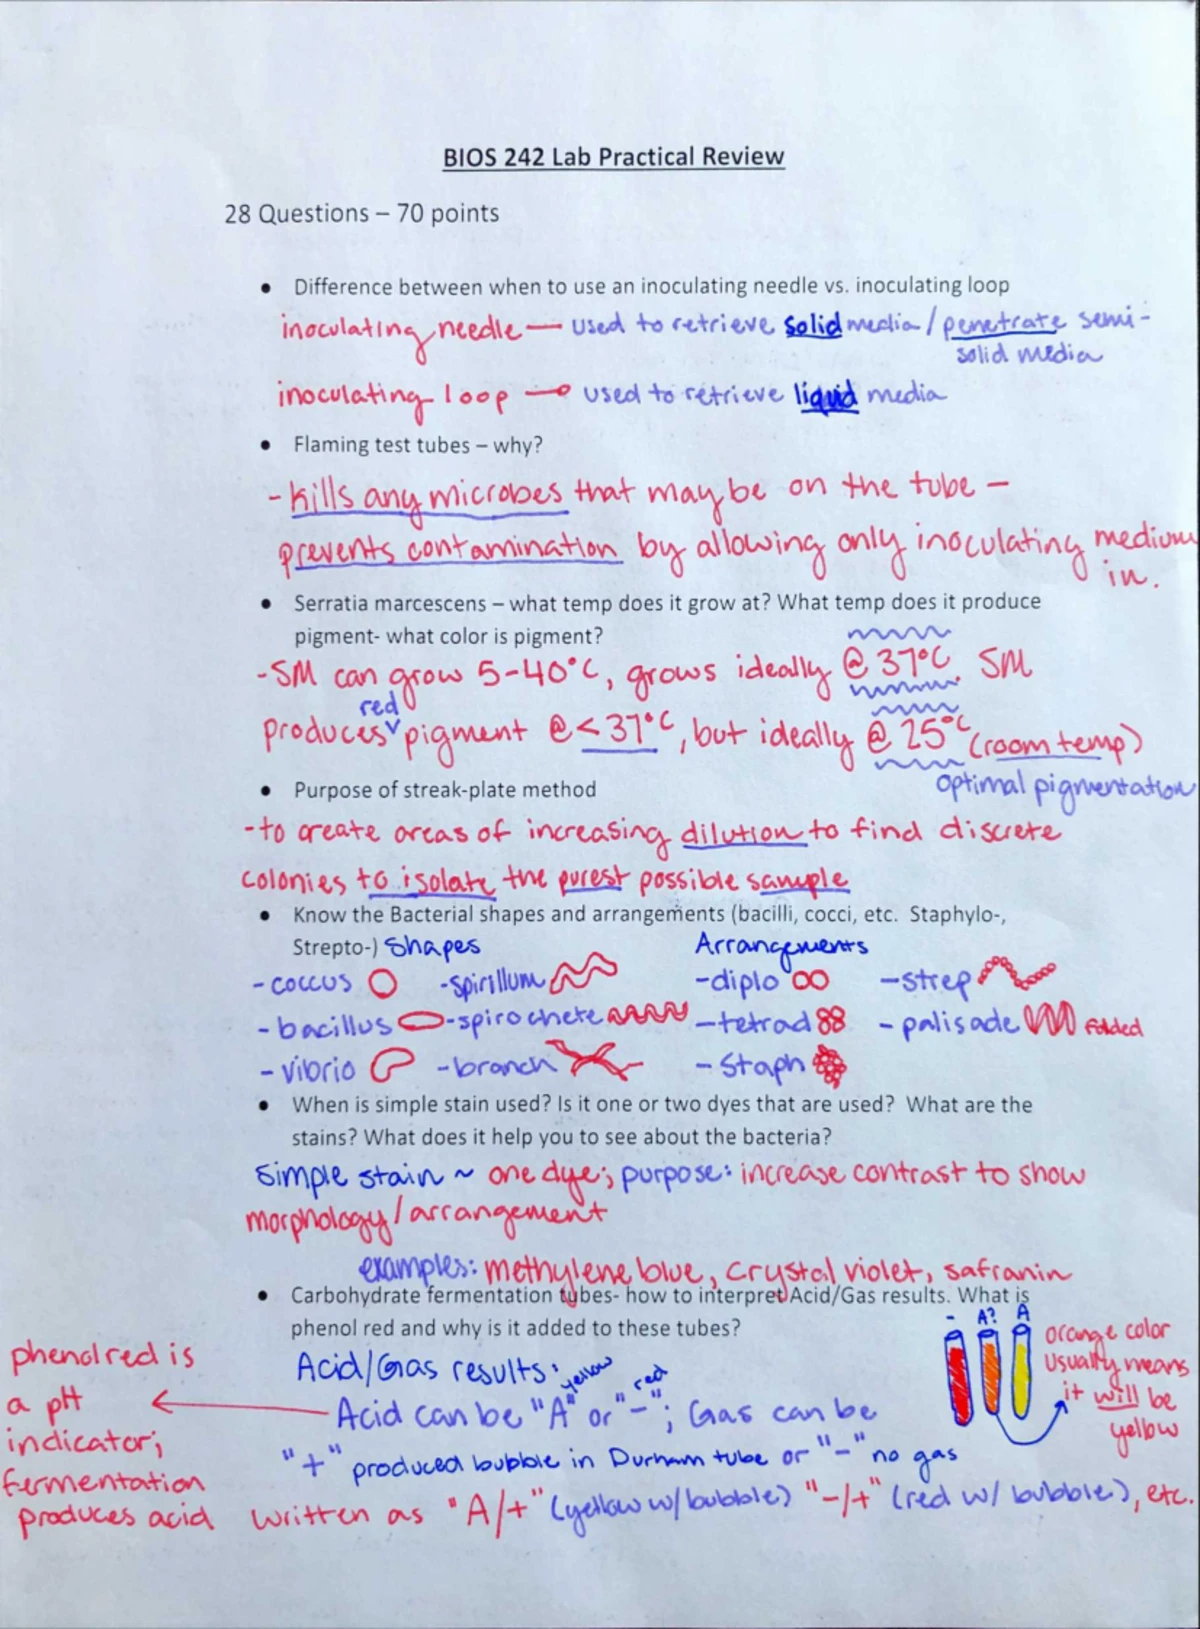 BIOS 242 Lab Practical Review
28 Questions – 70 points
• Difference between when to use an inoculating needle vs. inoculating loop
inoculating needle — used to retrieve solid media / penetrate semi-
solid media
inoculating loop —o used to retrieve liquid media
• Flaming test tubes – why?
- kills any microbes that may be on the tube –
prevents contamination by allowing only inoculating medium
in.
• Serratia marcescens – what temp does it grow at? What temp does it produce
pigment- what color is pigment?
-SM can grow 5-40°C, grows ideally @ 37°C. SM
red
produces pigment @ < 37°C, but ideally @ 25°C (room temp)
optimal pigmentation
• Purpose of streak-plate method
-to create areas of increasing dilution to find discrete
colonies to isolate the purest possible sample
• Know the Bacterial shapes and arrangements (bacilli, cocci, etc. Staphylo-,
Strepto-) Shapes Arrangements
- coccus -spirillum -diplo -strep
- bacillus -spirochete -tetrad - palisade folded
- vibrio -branch - Staph
• When is simple stain used? Is it one or two dyes that are used? What are the
stains? What does it help you to see about the bacteria?
Simple stain ~ one dye; purpose: increase contrast to show
morphology / arrangement
examples: methylene blue, crystal violet, safranin
• Carbohydrate fermentation tubes- how to interpret Acid/Gas results. What is
phenol red and why is it added to these tubes?
- A? A
orange color
usually means
it will be
yellow
phenol red is
a pH
indicator;
fermentation
produces acid
Acid/Gas results:
yellow red
Acid can be "A" or "-"; Gas can be
"+" produced bubble in Durham tube or "-" no gas
written as "A/+" (yellow w/bubble) "-/+" (red w/ bubble), etc.